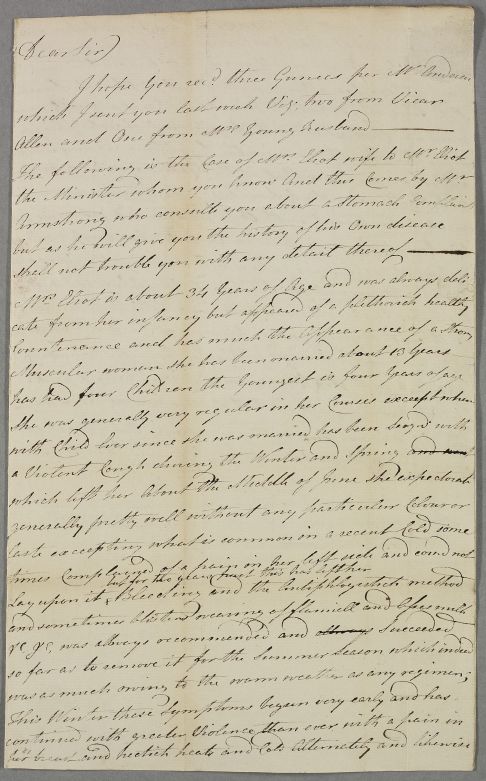 Dear Sir)
I hope you recd. three Guneas per Mr. Anderson
which I sent you last week Viz. two from Vicar
Allen and One from Mrs. Young husband
The following is the Case of Mrs. Eliot wife to Mr. Eliot
the Minister whom you know And this Comes by Mr.
Armstrong who consults you about a Stomach Complaint
but as he will give you the history of his Own disease
shall not trouble you with any detail thereof
Mrs. Eliot is about 34 Years of Age and was always deli
cate from her infancy but appeared of a plithorich healthy
Countenance and has much the Appearance of a Strong
Muscular woman She has been married about 13 Years
has had four Children the Youngest is four Years of age
She was generally very regular in her Courses except when
with Child Ever since she was married has been Seized with
a Violent Cough during the Winter and Spring
which left her About the Middle of June She expectorate
generally pretty well without any particular Colour or
taste excepting what is common in a recent Cold some
times Complained of a pain in her left side and coud not
but for two years past this has left her
Lay upon it Bleeding and the Antiphlogistick method
and sometimes blisters wearing of flannel and Asses milk
&c &c, was allways recommended and allways Succeeded
so far as to remove it for the Summer Season which indeed
was as much owing to the warm weather as any regimen;
This Winter these Symptoms begun very early and has
continued with greater Violence than ever with a pain in
her breast and hectich heats and Cold Alternately and likewise